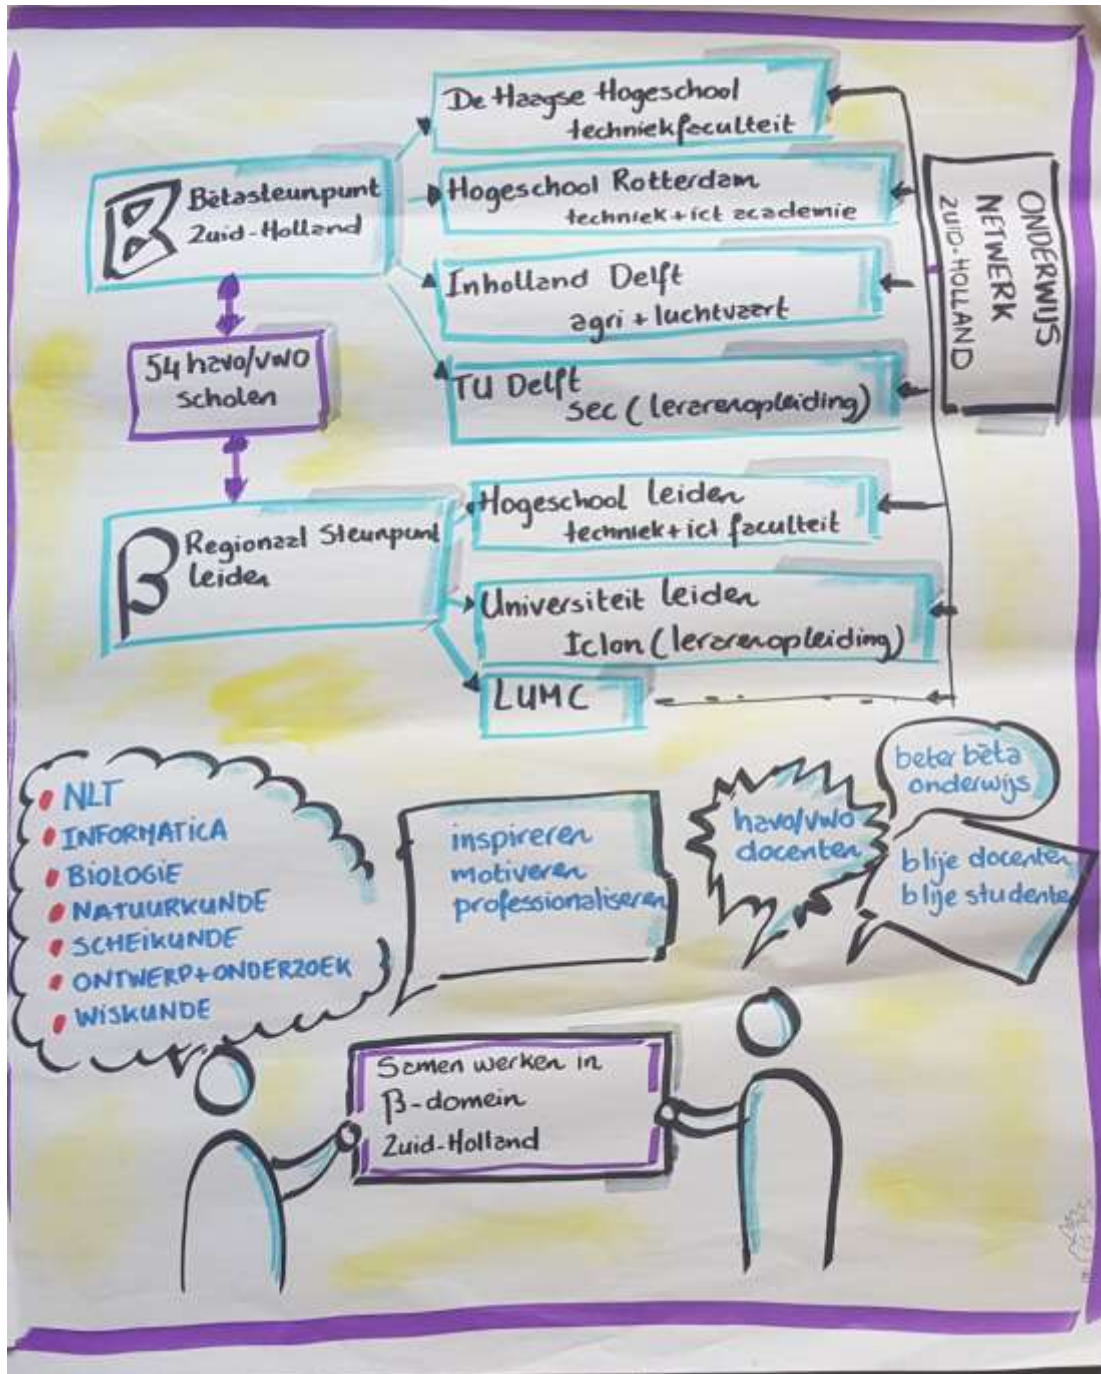 De Haagse Hogeschool
techniekfaculteit
B Bètasteunpunt
Zuid-Holland
Hogeschool Rotterdam
techniek+ict academie
Inholland Delft
agri + luchtvaart
TU Delft
sec (lerarenopleiding)
ONDERWIJS
NETWERK
ZUID-HOLLAND
54 havo/vwo
scholen
β Regionaal Steunpunt
Leiden
Hogeschool leiden
techniek+ict faculteit
Universiteit leiden
Iclon (lerarenopleiding)
LUMC
NLT
INFORMATICA
BIOLOGIE
NATUURKUNDE
SCHEIKUNDE
ONTWERP+ONDERZOEK
WISKUNDE
inspireren
motiveren
professionaliseren
havo/vwo
docenten
beter bèta
onderwijs
blije docenten
blije studenten
Samen werken in
β-domein
Zuid-Holland